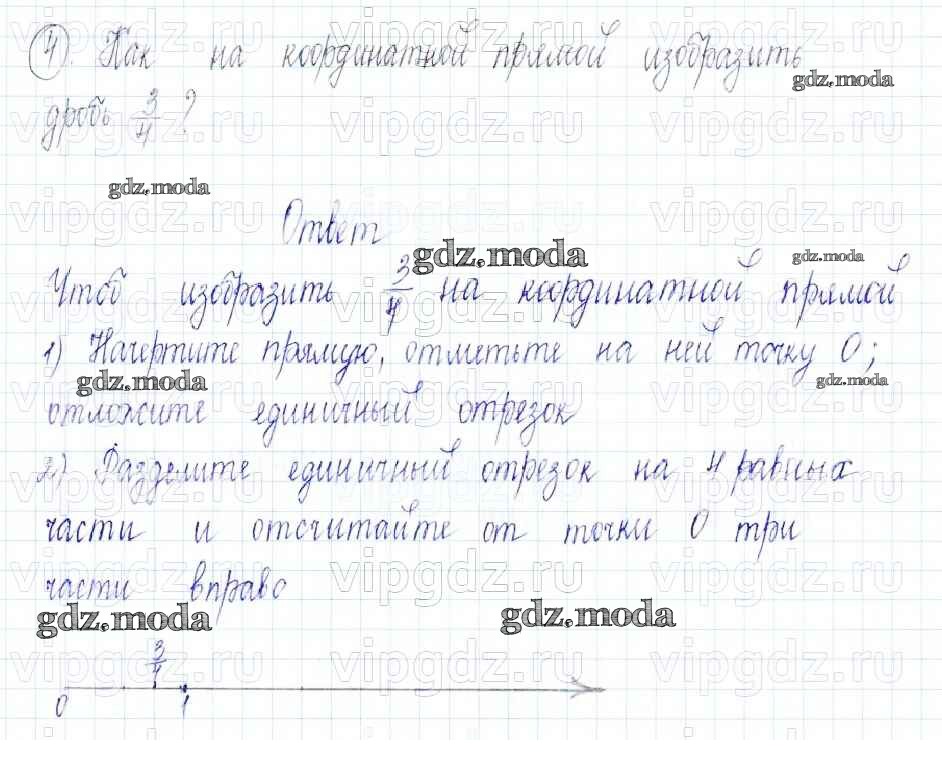 4). Как на координатной прямой изобразить
дробь 3/4 ?
Ответ
Чтоб изобразить 3/4 на координатной прямой
1) Начертите прямую, отметьте на ней точку 0;
отложите единичный отрезок
2) Разделите единичный отрезок на 4 равных
части и отсчитайте от точки 0 три
части вправо
3/4
0 1
gdz.moda
gdz.moda
gdz.moda
gdz.moda
gdz.moda
gdz.moda
gdz.moda
gdz.moda
vipgdz.ru